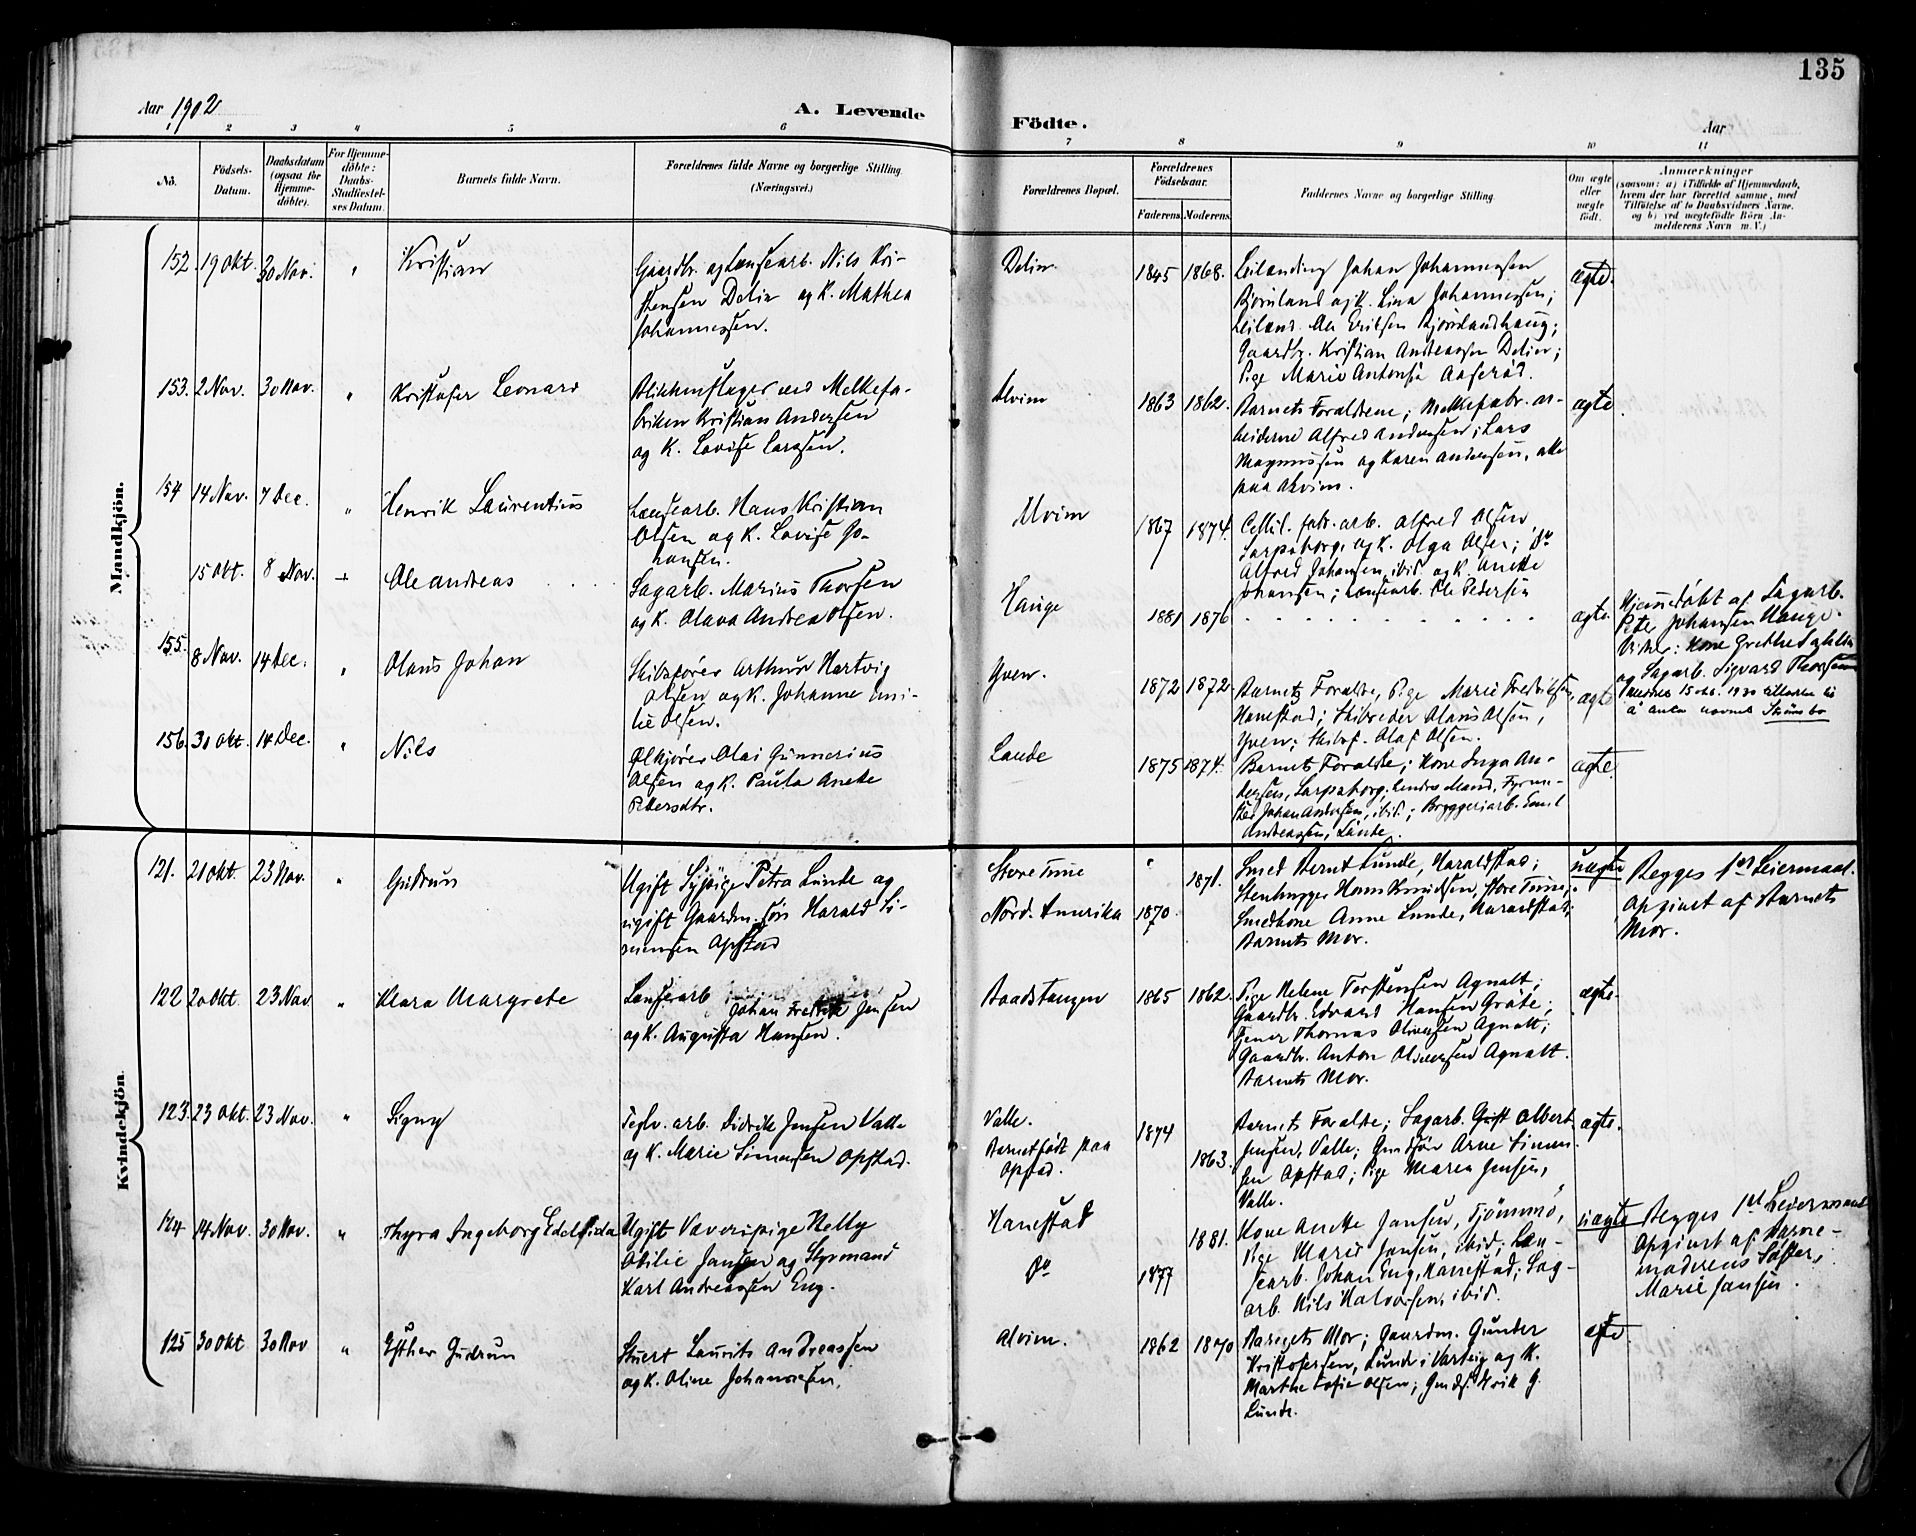 135
Aar 1902
A. Levende
Födte.
Aar
2 3 4 5 6 7 8 9 10 11
Nö.
Födsels-Datum.
Daabsdatum (ogsaa for Hjemme-döbte).
For Hjemme-döbte: Daabs-Stadfæstel-ses Datum.
Barnets fulde Navn.
Forældrenes fulde Navne og borgerlige Stilling (Næringsvei.)
Forældrenes Bopæl.
Forældrenes Födselsaar.
Faderens. Moderens.
Faddernes Navne og borgerlige Stilling.
Om ægte eller uægte födt.
Anmærkninger
(saasom: a) i Tilfælde af Hjemmedaab, hvem der har forrettet samme, med Tilföielse af to Daabsvidners Navne. og b) ved uægtefödte Börn Anmelderens Navn m. V.)
Mandkjön.
152. 19 Okt. 30 Nov. " Kristian
Gaardbr. og Lensearb. Nils Kri-
stensen Delin og K. Mathea
Johannessen.
Delin. 1845 1868.
Leilænding Johan Johannessen
Bjørnland og K. Lina Johannessen;
Leilænd. Ole Eriksen Bjørnlandhaug;
Gaardbr. Kristian Andreassen Delin;
Pige Marie Antonsen Aaserød.
ægte.
153. 2 Nov. 30 Nov. " Kristofer Leonard
Blikkenslager ved Melkefa-
briken Kristian Andersen
og K. Lovise Larssen.
Alvim 1863 1862.
Barnets Forældrene; Melkefabr. ar-
beiderne Alfred Andersen; Lars
Magnussen og Karen Andersen, alle
paa Alvim.
ægte
154 14 Nov. 7 Dec. " Henrik Laurentius
Lensearb. Hans Kristian
Olsen og K. Lovise Jo-
hansen.
Alvim 1867 1874.
Cellul. fabr. arb. Alfred Olsen,
Sarpsborg og K. Olga Olsen; Do
Alfred Johansen, ibid og K. Anette
Johansen; Lensearb. Ole Pedersen
15 Okt. 8 Nov. + Ole Andreas
Sagarb. Marius Thorsen
og K. Olava Andrea Olsen.
Hauge 1881 1876
ægte.
Hjemmedøbt af Sagarb.
Peter Johansen Hauge.
Vidner: Kone Grethe
og Sagarb. Sigvard Thorsen
155. 8 Nov. 14 Dec. " Olaus Johan
Skibsfører Arthur Hartvig
Olsen og K. Johanne Emi-
lie Olsen.
Yven. 1872 1872.
Barnets Forældre, Pige Marie Fredriksen,
Hanestad; Skibsreder Olaus Olsen,
Yven; Skibsf. Olaf Olsen.
ægte
15 okt. 1930
navnet Strømsbo
156. 30 Okt. 14 Dec. " Nils
Ølkjører Olai Gunnerius
Olsen og K. Paula Anette
Pettersdtr.
Lande 1875 1874.
Barnets Forældre; Kone Inga An-
dersen, Sarpsborg; hendes Mand, Fyrmes-
ter Johan Andersen, ibid; Bryggeriarb. Emil
Andreassen, Lande.
ægte.
Kvindekjön.
121. 21 Okt. 23 Nov. " Gudrun
Ugift Sypige Petra Lunde og
ugift Gaardm. søn Harald Si-
mensen Opstad
Store Tune " 1871.
Nord. Amerika 1870.
Smed Bernt Lunde, Haraldstad;
Stenhugger Hans Knudsen, Store Tune;
Smedkone Anne Lunde, Haraldstad;
Barnets Mor.
uægte
Begges 1st Leiermaal.
Opgivet af Barnets
Mor.
122 20 Okt. 23 Nov " Klara Margrete
Lensearb Johan Fredrik Jensen
og K. Augusta Hansen.
Baadstangen 1865 1862.
Pige Helene Torstensen Agnalt;
Gaardbr. Edvard Hansen Grate;
Tjener Thomas Oliversen Agnalt;
Gaardbr. Anton Oliversen Agnalt.
Barnets Mor.
ægte.
123. 23 Okt. 23 Nov. " Signy
Teglv. arb. Didrik Jensen Valle
og K. Marie Simensen Opstad.
Valle.
Barnet født paa
Opstad.
1874 1863.
Barnets Forældre; Sagarb. Gust Albert
Jensen, Valle; Gmdsøn Arne Simen-
sen Opstad; Pige Maren Jensen,
Valle.
ægte.
124 14 Nov. 30 Nov. " Thyra Ingeborg Edelfrida
Ugift Væveripige Nelly
Otilie Jansen og Styrmand
Karl Andreassen Eng.
Hanestad 1881.
Do 1877
Kone Anette Jansen, Tjømmø,
Pige Marie Jansen, ibid; Len-
searb. Johan Eng, Hanestad; Sag-
arb. Nils Halvorsen, ibid.
uægte
Begges 1st Leiermaal
Opgivet af Barne-
moderens Søster,
Marie Jansen.
125 30 Okt 30 Nov " Esther Gudrun
Stuert Laurits Andreassen
og K. Oline Johannesen.
Alvim. 1862 1870
Barnets Mor; Gaardm. Gunder
Kristofersen, Lunde i Varteig og K.
Marthe Sofie Olsen; Gmds. Hvik G.
Lunde.
ægte